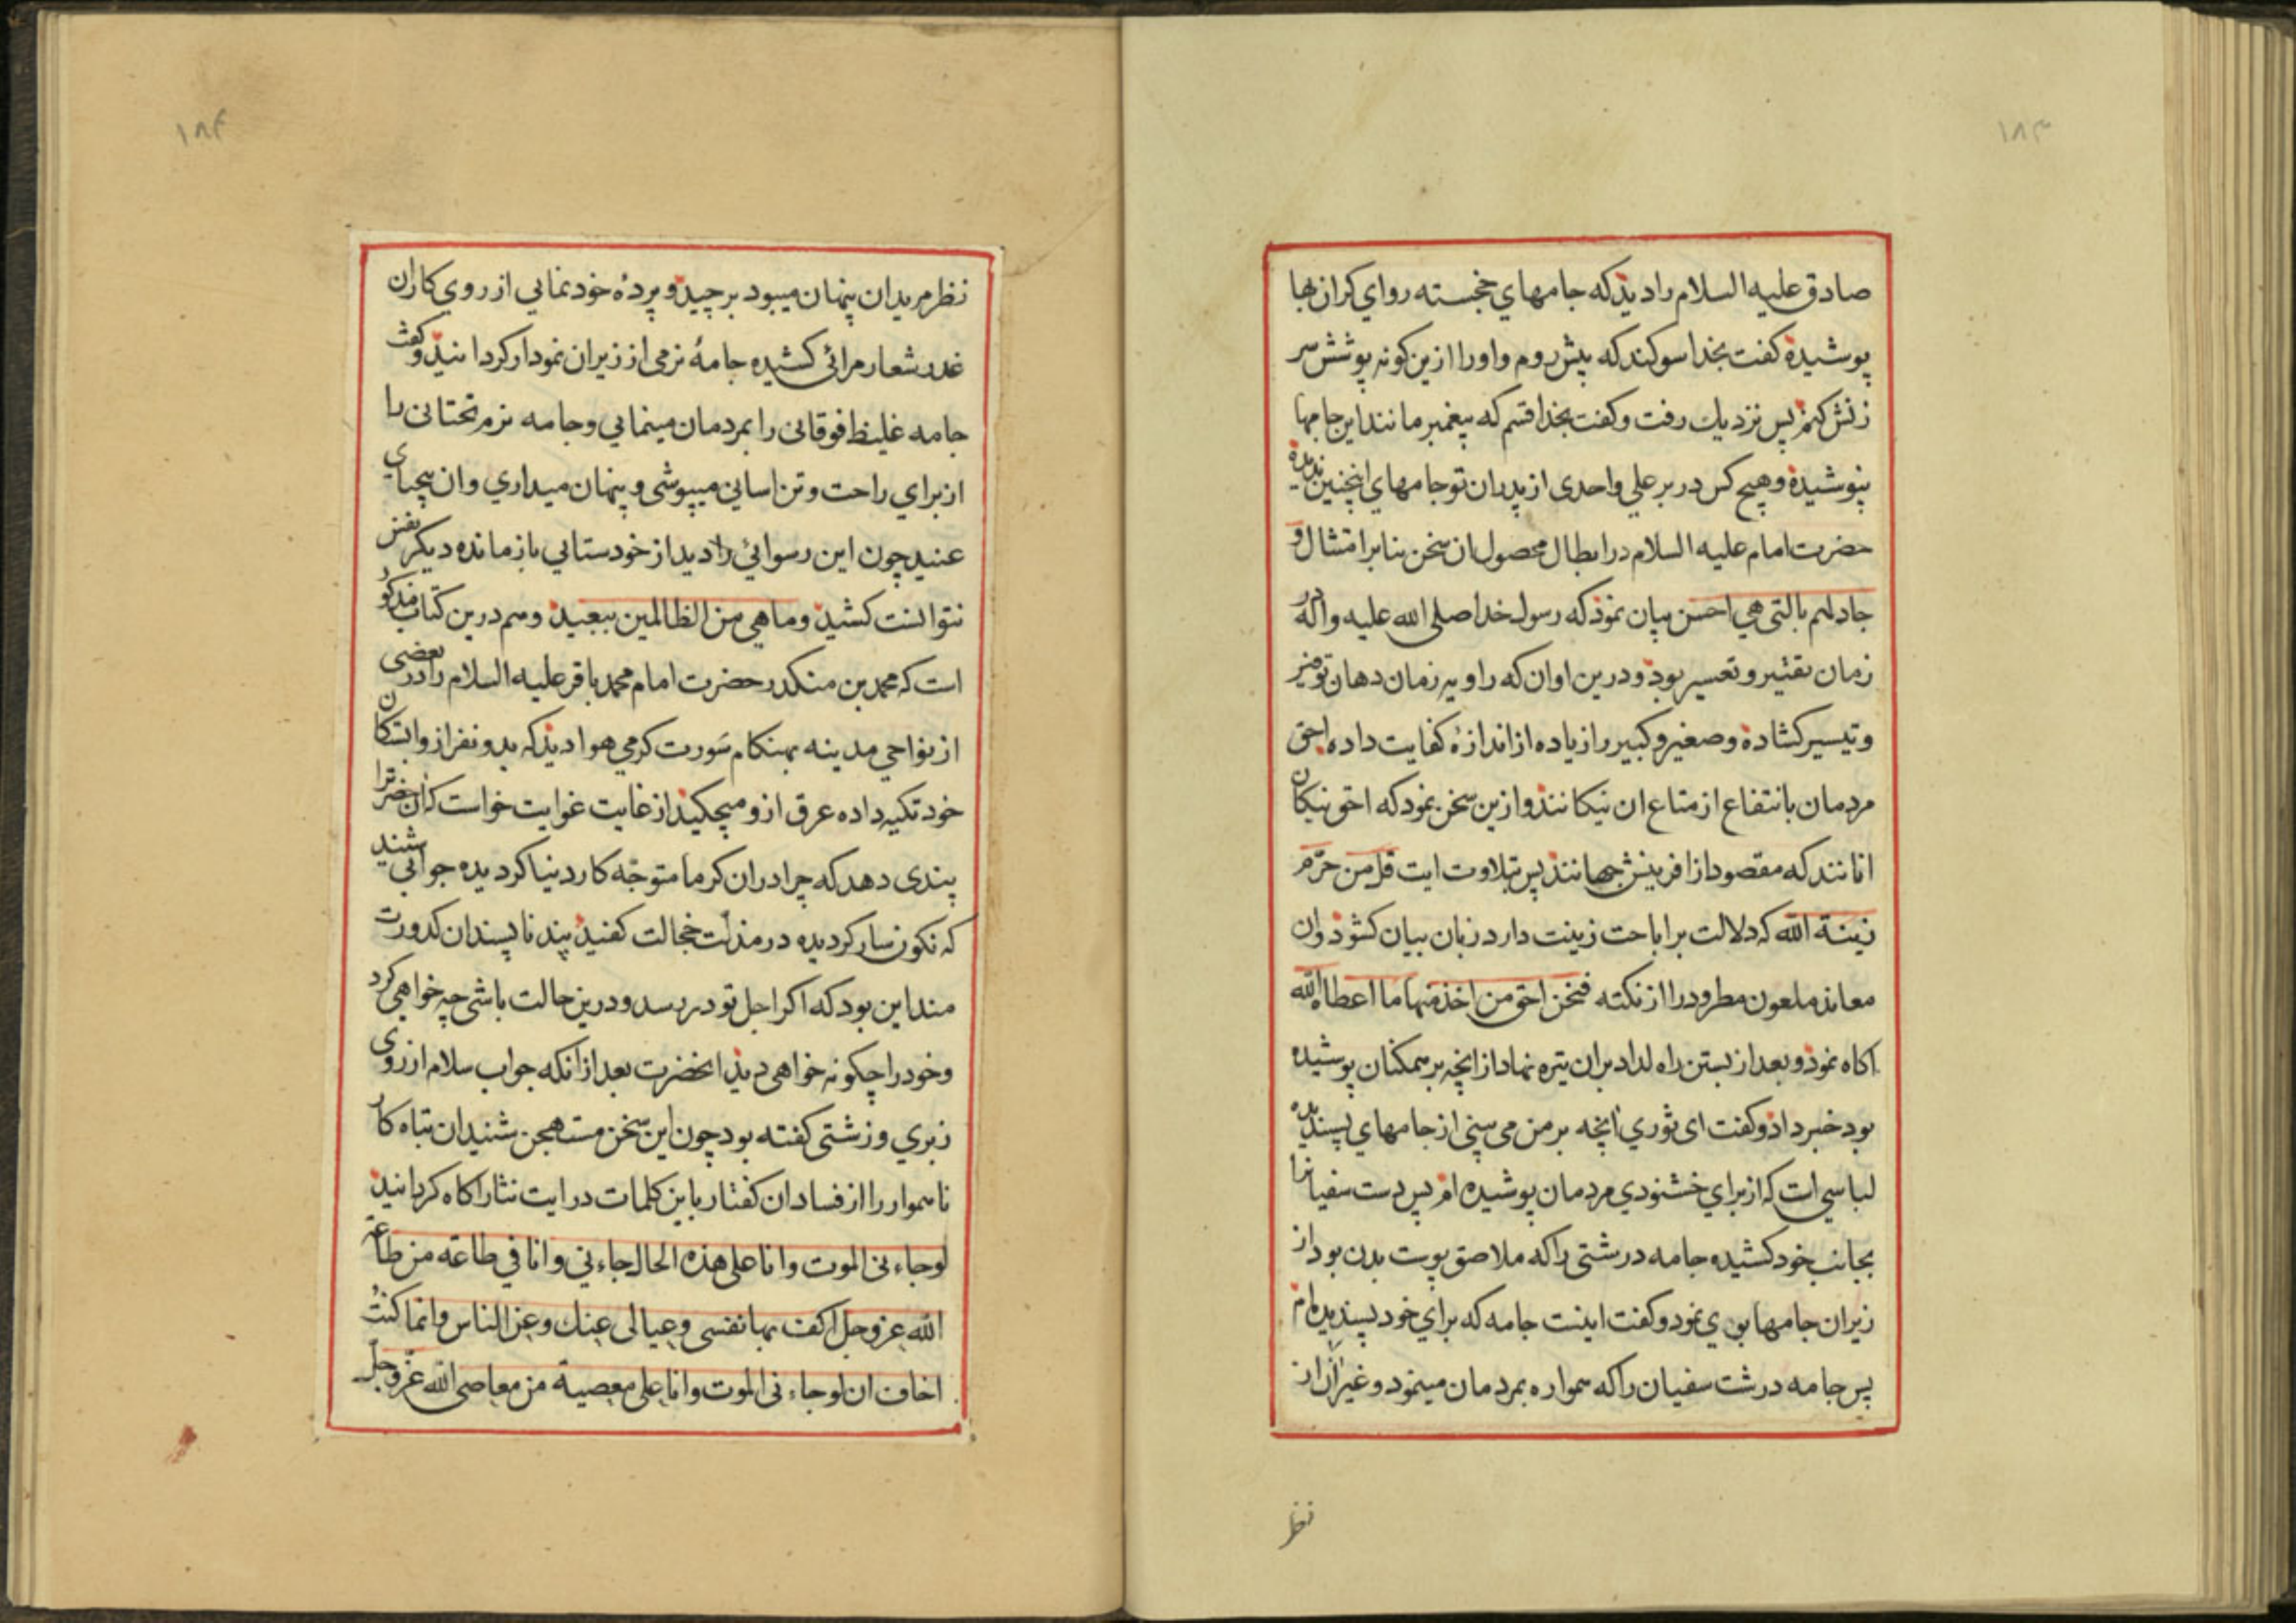 ١٨٣
صادق عليه السلام را ديد كه جامهاي خجسته رواي كران بها
پوشيده كفت بخدا سوكند كه پيش روم و او را ازين كونه پوشش سر
زنش كنم پس نزديك رفت و كفت بخدا قسم كه پيغمبر مانند اين جامها
نپوشيده و هيچ كس در بر علي و احدى از پدران تو جامهاي اينچنين نديده
حضرت امام عليه السلام در ابطال محصول ان سخن بنا بر امتثال و
جادلهم بالتى هي احسن بيان نمود كه رسول خدا صلى الله عليه و اله در
زمان تقتير و تعسير بود و درين اوان كه راويه زمان دهان
و تيسير كشاده و صغير و كبير را زياده از اندازه كفايت داده احق
مردمان بانتفاع از متاع ان نيكانند و ازين سخن نمود كه احق نيكان
انانند كه مقصود از افرينش جهانند پس بتلاوت ايت قل من حرّم
زينة الله كه دلالت بر اباحت زينت دارد زبان بيان كشود و ان
معاند ملعون مطرود را از نكته فنحن احق من اخذ منها ما اعطاه الله
اكاه نمود و بعد از بستن راه لداد بران تيره نهاد از انچه بر ممكنان پوشيده
بود خبر داد و كفت اى ثوري انچه بر من مى بينى از جامهاي پسنديده
لباسي است كه از براي خشنودي مردمان پوشيده ام پس دست سفيان را
بجانب خود كشيده جامه درشتى را كه ملاصق پوست بدن بود از
زيران جامها بوي نمود و كفت اينست جامه كه براي خود پسنديده ام
پس جامه درشت سفيان را كه همواره بمردمان مينمود و غير انرا از
نظر
١٨٤
نظر مريدان پنهان ميبود برچيد و پردهٔ خود نمايي از روي كار ان
غدر شعار مرائى كشيده جامهٔ نرمى از زيران نمودار كردانيد و كفت
جامه غليظ فوقانى را بمردمان مينمايي و جامه نرم تحتانى را
از براي راحت و تن اسانى ميپوشى و پنهان ميداري و ان بيحياي
عنيد چون اين رسوائي را ديد از خودستايي باز مانده ديكر نفس
نتوانست كشيد و ما هي من الظالمين ببعيد و هم درين كتاب مذكور
است كه محمد بن منكدر حضرت امام محمد باقر عليه السلام را در بعضى
از نواحي مدينه بهنكام سورت كرمي هوا ديد كه بدو نفر از وابستكان
خود تكيه داده عرق ازو ميچكيد از غايت غوايت خواست كه انحضرترا
پندى دهد كه چرا دران كرما متوجّه كار دنيا كرديده جوابي شنيد
كه نكونسار كرديده در مذلّت خجالت پند ناپسندان كدورت
مند اين بود كه اكر اجل تو در رسد و درين حالت باشى چه خواهي كرد
و خود را چكونه خواهى ديد انحضرت بعد از انكه جواب سلام از روي
زبري و زشتى كفته بود چون اين سخن مستهجن شنيد ان تباه كار
ناهموار را از فساد ان كفتار باين كلمات درايت نثار اكاه كردانيد
لو جاءنى الموت و انا على هذه الحال جاءني و انا في طاعة من طاعة
الله عز و جل اكف بها نفسى و عيالى عنك و عن الناس و انما كنتُ
اخاف ان لو جاءنى الموت و انا على معصية من معاصى الله عزّ و جلّ